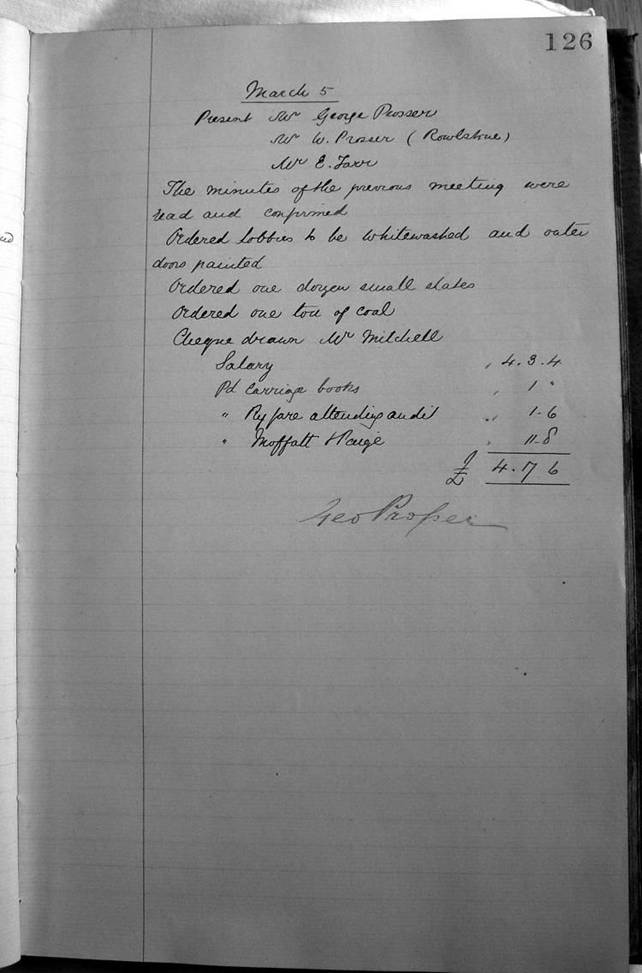 126
March 5
Present Mr George Prosser
Mr W. Prosser (Rowlstone)
Mr E. Farr
The minutes of the previous meeting were
read and confirmed
Ordered lobbies to be whitewashed and outer
doors painted
Ordered one dozen small slates
Ordered one ton of coal
Cheque drawn Mr Mitchell
Salary " 4.3.4
Pd Carriage books " 1 "
" Ry fare attending audit " 1-6
" Moffatt & Paige " 11-8
£ 4.17 6
Geo Prosser